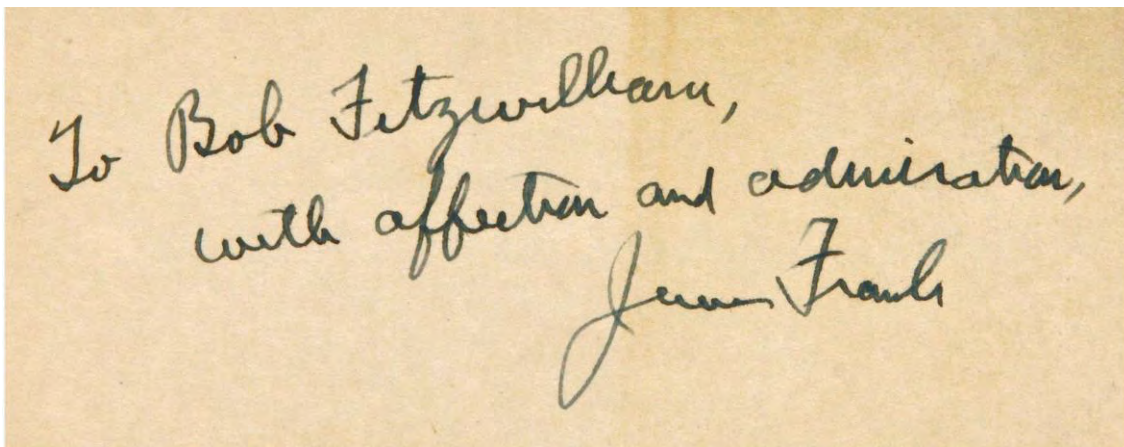 To Bob Fitzwilliam,
with affection and admiration,
Jerome Frank